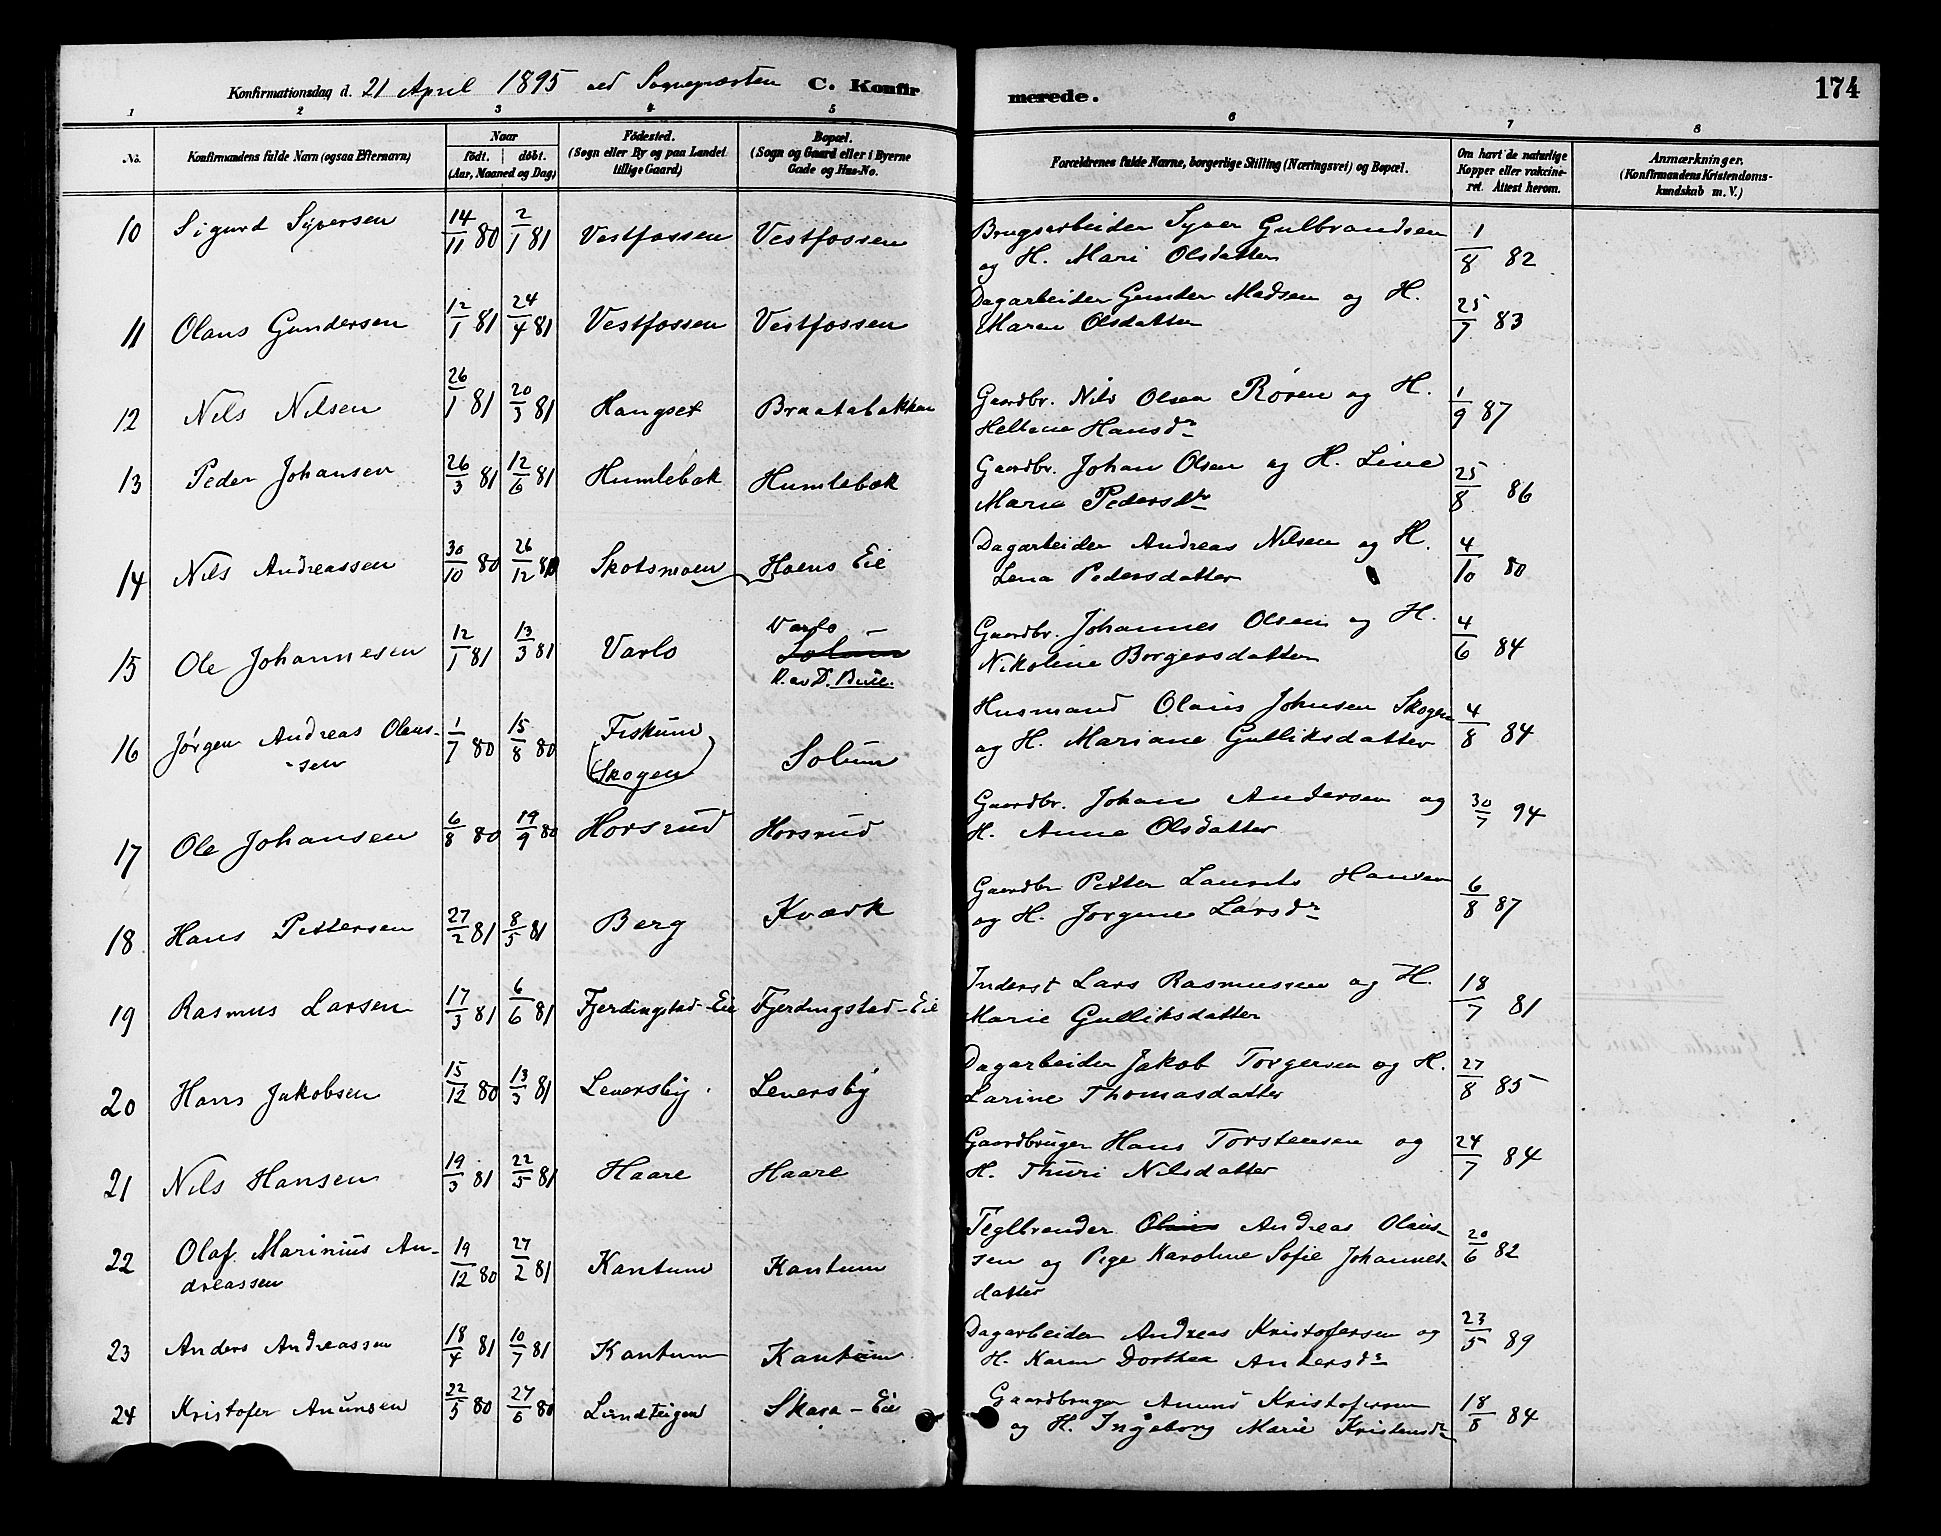 Konfirmationsdag d. 21 April 1895 ved Sognepræsten C. Konfir merede. 174
1 2 3 4 5 6 7 8
No. Konfirmandens fulde Navn (ogsaa Efternavn) Naar født. døbt. (Aar, Maaned og Dag) Fødested. (Sogn eller By og paa Landet tillige Gaard) Bopæl. (Sogn og Gaard eller i Byerne Gade og Hus-No. Forældrenes fulde Navne, borgerlige Stilling (Næringsvei) og Bopæl. Om havt de naturlige Kopper eller vaccineret. Attest herom. Anmærkninger. (Konfirmandens Kristendomskundskab m. V.)
10 Sigurd Syversen 14/11 80 2/1 81 Vestfossen Vestfossen Brugsarbeider Syver Gulbrandsen 1/8 82
og H. Mari Olsdatter
11 Olaus Gundersen 12/1 81 24/4 81 Vestfossen Vestfossen Dagarbeider Gunder Madsen og H. 25/7 83
Maren Olsdatter
12 Nils Nilsen 26/1 81 20/3 81 Hangset Braatabakken Gaardbr. Nils Olsen Røren og H. 1/9 87
Hellene Hansdr
13 Peder Johansen 26/3 81 12/6 81 Humlebæk Humlebæk Gaardbr. Johan Olsen og H. Line 25/8 86
Marie Pedersdtr
14 Nils Andreassen 30/10 80 26/12 80 Skotsmoen Hoens Eie Dagarbeider Andreas Nilsen og H. 4/10 80
Lena Pedersdatter
15 Ole Johannesen 12/1 81 13/3 81 Varlo Varlo Solum Gaardbr. Johannes Olsen og H. 4/6 84
Nikoline Borgersdatter
16 Jørgen Andreas Olaus- 1/7 80 15/8 80 Fiskum Solum Husmand Olaus Johnsen Skogen 4/8 84
sen (Skogen) og H. Mariane Gulliksdatter
17 Ole Johansen 6/8 80 19/9 80 Horsrud Horsrud Gaardbr. Johan Andersen og 30/7 94
H. Anne Olsdatter
18 Hans Pettersen 27/2 81 8/5 81 Berg Kværk Gaardbr Petter Laurits Hansen 6/8 87
og H. Jørgene Larsdr
19 Rasmus Larsen 17/3 81 6/6 81 Fjerdingstad-Eie Fjerdingstad-Eie Inderst Lars Rasmussen og H. 18/7 81
Marie Gulliksdatter
20 Hans Jakobsen 15/12 80 13/3 81 Leversby Leversby Dagarbeider Jakob Torgersen og H. 27/8 85
Larine Thomasdatter
21 Nils Hansen 19/3 81 22/5 81 Haare Haare Gaardbruger Hans Torstensen og 24/7 84
H. Thuri Nilsdatter
22 Olaf Marinius An- 19/12 80 27/2 81 Kantum Kantum Teglbrender Olaus Andreas Olaus- 20/6 82
dreassen sen og Pige Karoline Sofie Johannes-
datter
23 Anders Andreassen 18/4 81 10/7 81 Kantum Kantum Dagarbeider Andreas Kristofersen og 23/5 89
H. Karen Dorthea Andersdr
24 Kristofer Anunsen 22/5 80 27/6 80 Lundteigen Skara-Eie Gaardbruger Anund Kristofersen 18/8 84
og H. Ingeborg Marie Kristensdr